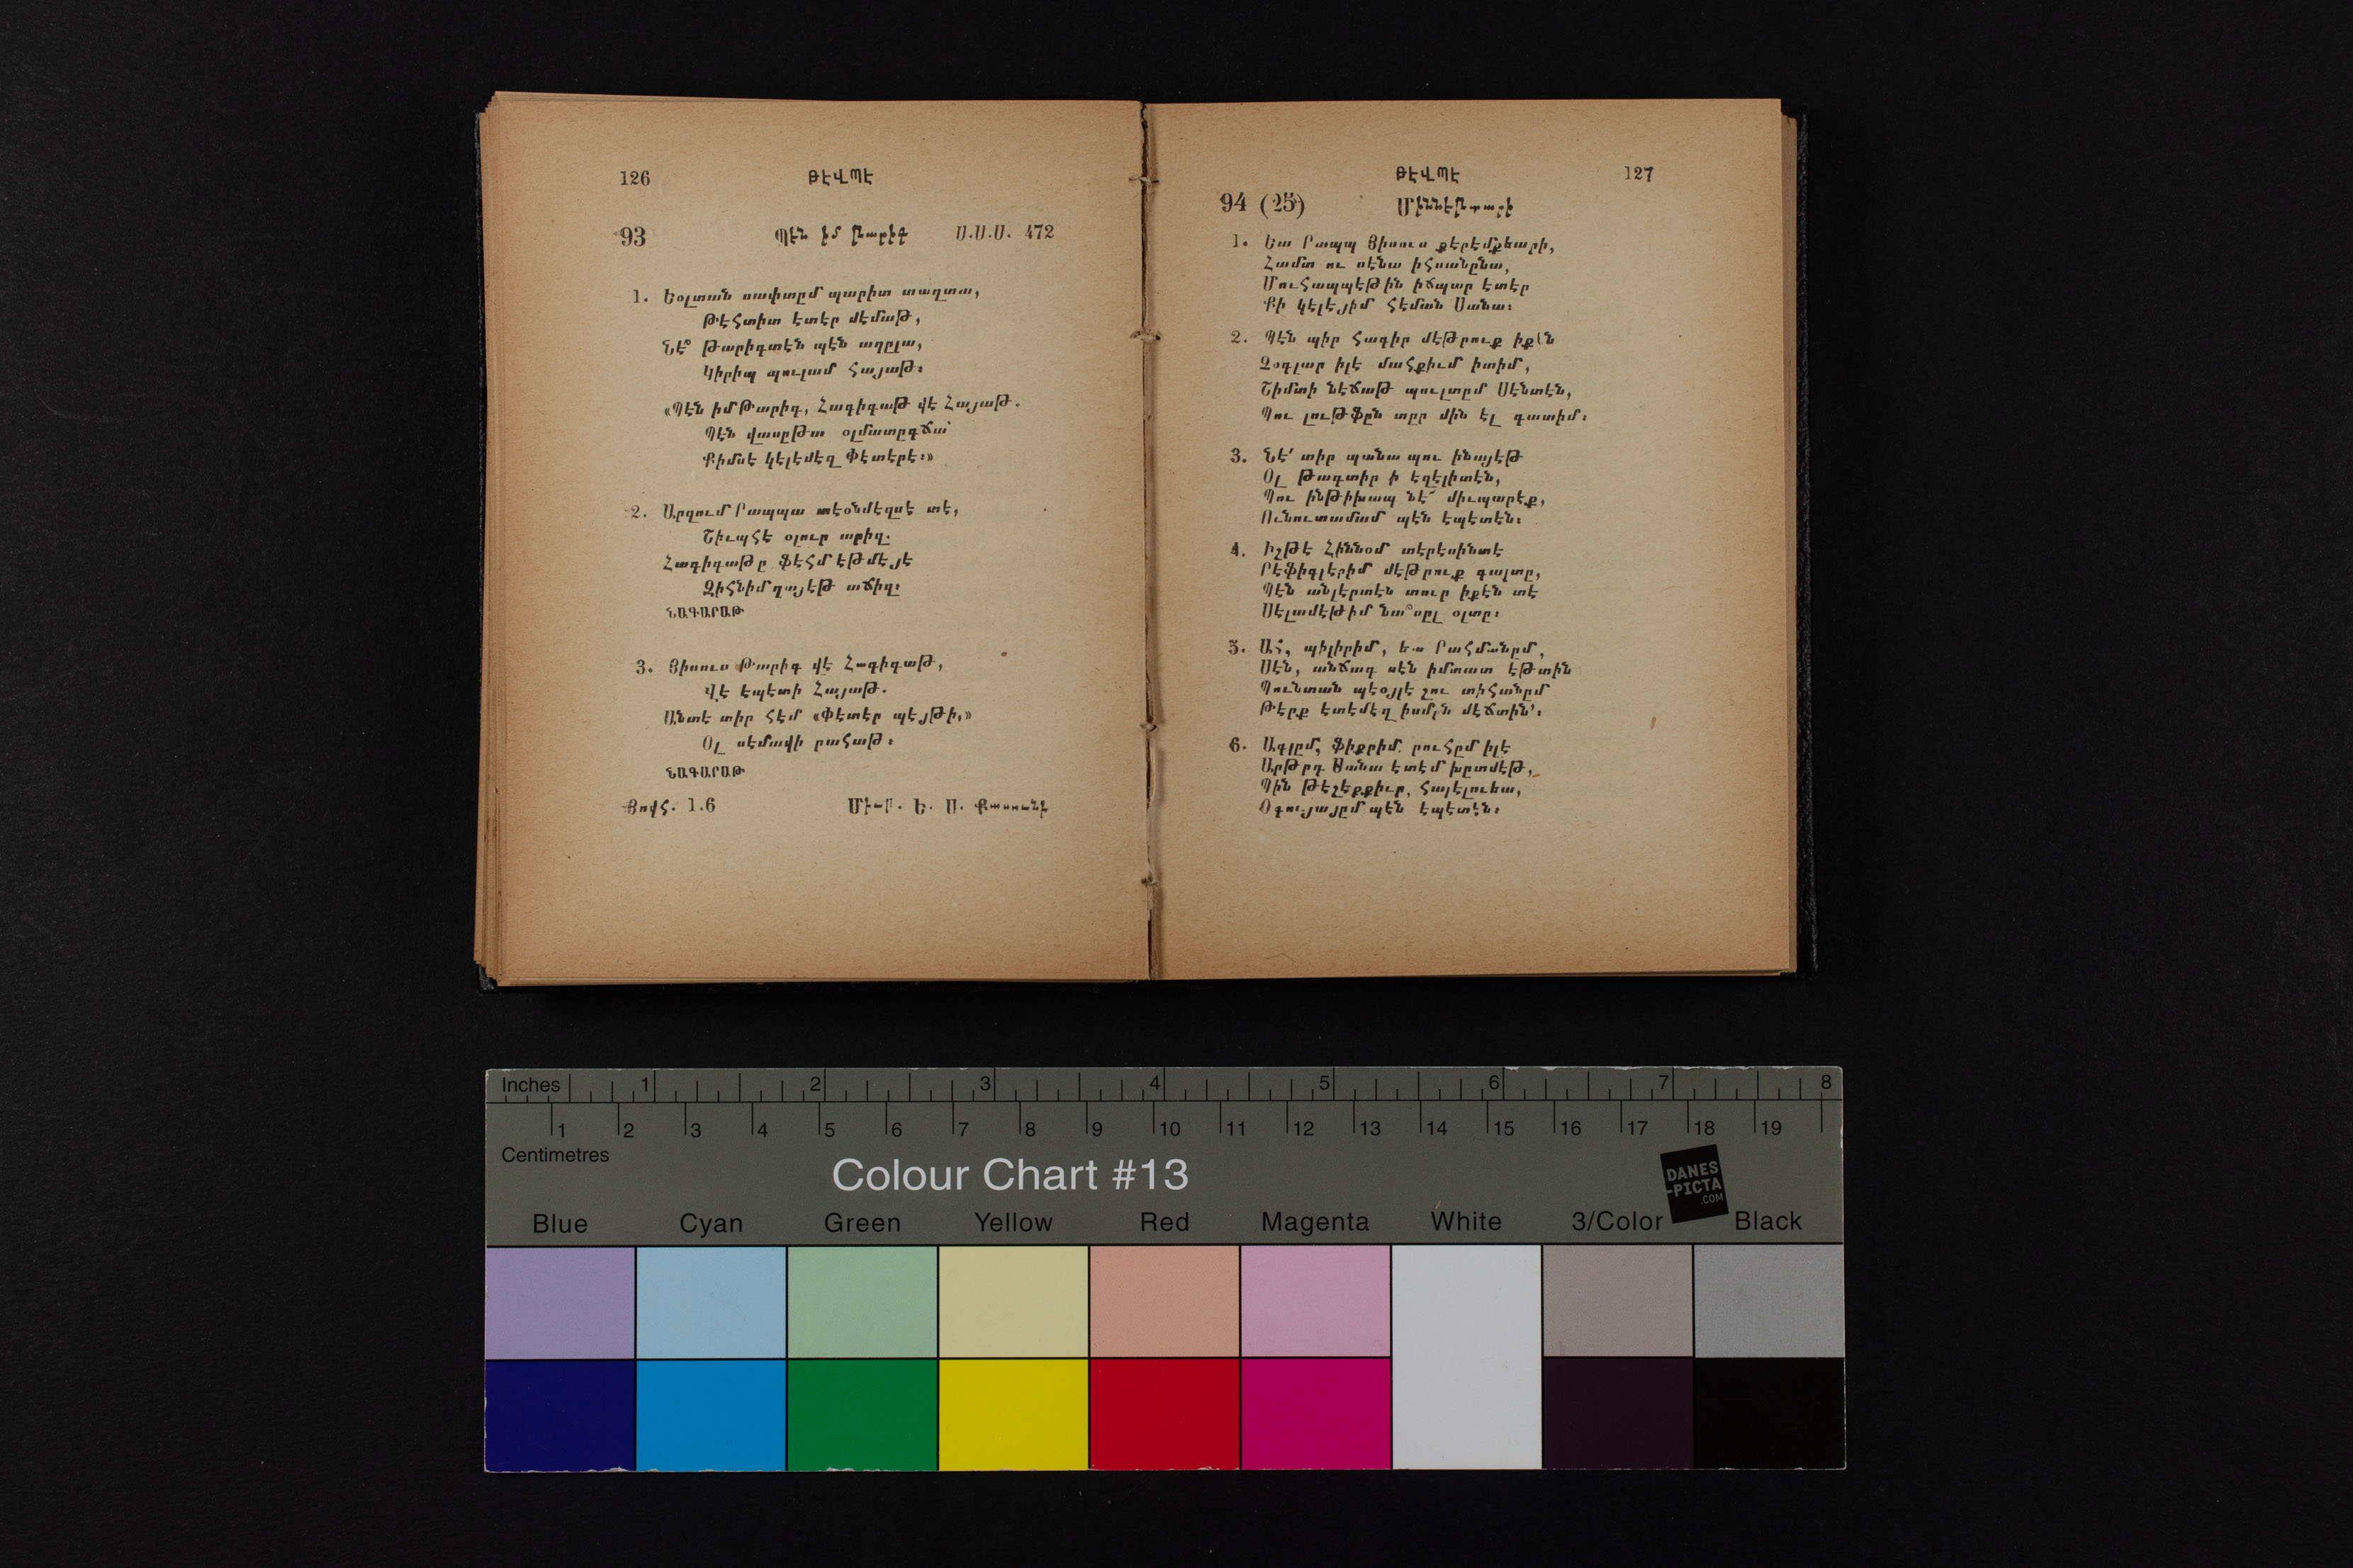 126 ԹԷՎՊԷ
93 Պէն իմ թարիգ Ս.Ս.Ս. 472
1. Եօլտան սափտըմ պարիտ տաղտա,
Թէհտիտ էտէր մէմաթ,
Նէ՞ թարիգտէն պէն աղըլա,
Կիրիպ պուլամ հայաթ։
«Պէն իմ Թարիգ, Հագիգաթ վէ Հայաթ.
Պէն վասըթա օլմատըգճա՝
Քիմսէ կէլէմէզ Փէտէրէ։»
2. Արզում Րապպա տէօնմէզսէ տէ,
Շիւպհէ օլուր արիզ.
Հագիգաթը ֆէհմ էթմէյէ
Զիհնիմ ղայէթ աճիզ։
ՆԱԳԱՐԱԹ
3. Յիսուս Թարիգ վէ Հագիգաթ,
Վէ էպէտի Հայաթ.
Անտէ տիր հէմ «Փէտէր պէյթի,»
Օլ սէմավի րահաթ։
ՆԱԳԱՐԱԹ
Յովհ. 1.6 Ե. Ս. Քասունի
ԹԷՎՊԷ 127
94 (25)
1. Եա Րապպ Յիսուս քէրէմքեարի,
Համտ ու սէնա իհսանընա,
Մուհապպէթին իճպար էտէր
Քի կէլէյիմ հէման Սանա։
2. Պէն պիր հագիր մէթրուք իքէն
Զօգլար իլէ մահքիւմ իտիմ,
Շիմտի նէճաթ պուլտըմ Սէնտէն,
Պու լութֆըն տըր մին էլ գատիմ։
3. Նէ՛ տիր պանա պու ինայէթ
Օլ թագտիր ի եզէլիտէն,
Պու ինթիխապ նէ՜ միւպարէք,
Ունուտամամ պէն էպէտէն։
4. Իշթէ Հիննօմ տէրէսինտէ
Րէֆիգլէրիմ մէթրուք գալտը,
Պէն անլէրտէն տուր իքէն տէ
Սէլամէթիմ նա՞սըլ օլտը։
5. Ահ, պիլիրիմ, եա Րահմանըմ,
Սէն, անճադ սէն իմտատ էթտին
Պունտան պէօյլէ շու տիհանըմ
Թէրք էտէմէզ իսմըն մէճտին՝։
6. Ագլըմ, ֆիքրիմ. րուհըմ իլէ
Արթըդ Սանա էտէմ խըտմէթ,
Պին թէշէքքիւր, Հալէլուեա,
Օգույայըմ պէն էպէտէն։
Inches 1 2 3 4 5 6 7 8
1 2 3 4 5 6 7 8 9 10 11 12 13 14 15 16 17 18 19
Centimetres
Colour Chart #13
DANES
-PICTA
.COM
Blue Cyan Green Yellow Red Magenta White 3/Color Black